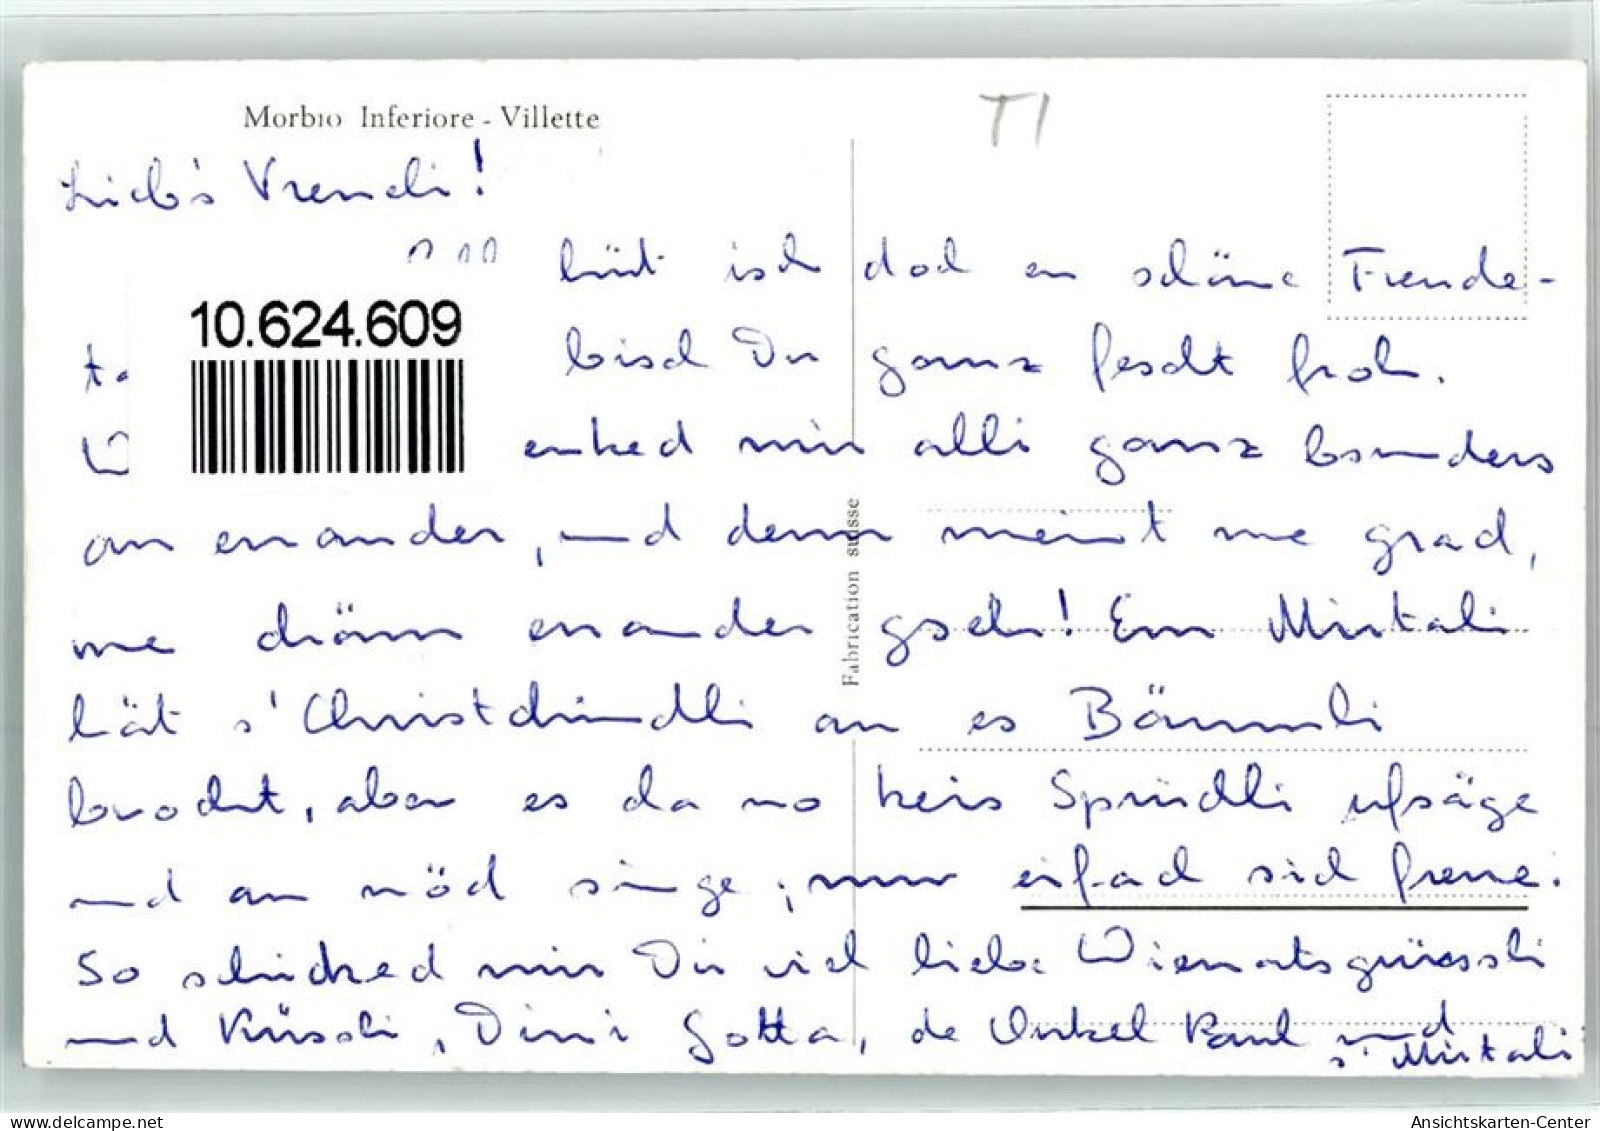 Morbio Inferiore - Villette
T1
Lieb's Vreneli!
hüt isch doch en schöne Freude-
ta
10.624.609
bisch Du ganz fescht froh.
enked mir alli ganz bsunders
an enander, und denn meint me grad,
me chönn enander gseh! Em Mirtali
hät s'Christchindli an es Bäumli
brocht, aber es da no keis Sprüchli ufsäge
und au nöd singe, nur eifach sich freue.
So schicked mir Dir viel liebe Wienachtsgrüessli
und Küssli, Dini Gotta, de Onkel Paul und
s'Mirtali
Fabrication suisse
Ansichtskarten-Center